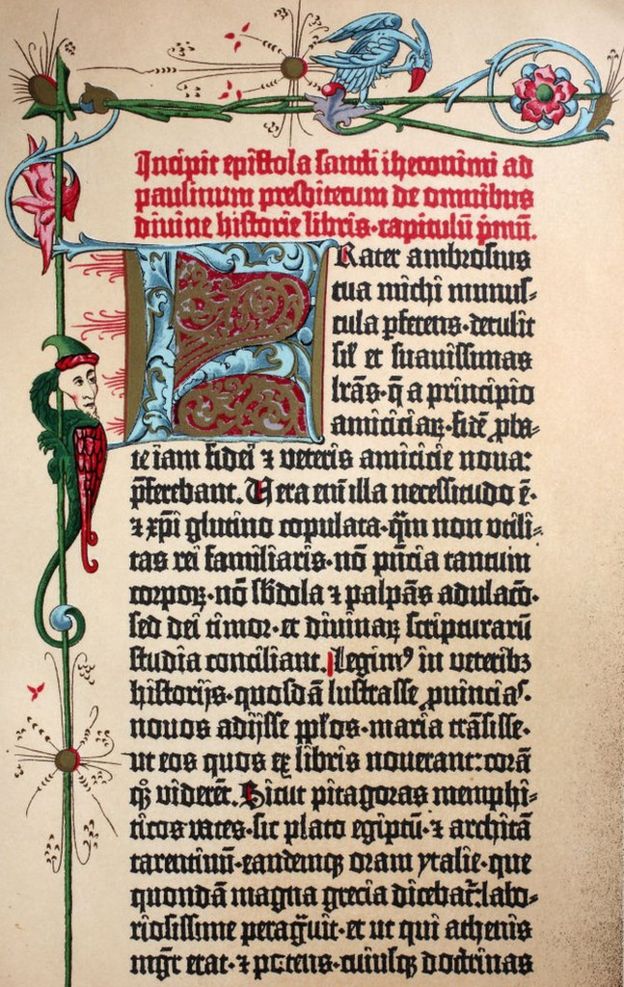 Incipit epistola sancti iheronimi ad
paulinum presbiterum de omnibus
divine historie libris·capitulū pmū.
Frater ambrosius
tua michi munus-
cula pferens·detulit
sil' et suavissimas
lrās·q̄ a principio
amiciciaꝝ·fidē ꝓba-
te iam fidei ⁊ veteris amicicie nova:
pferebant. Vera em̄ illa necessitudo ē·
⁊ xp̄i glutino copulata·q̄m non utili-
tas rei familiaris·nō pn̄cia tantum
corpoꝝ·nō sb'dola ⁊ palpās adulacō·
sed dei timor·et divinaꝝ scripturarū
studia conciliant. Legimꝰ in veteribꝫ
historijs·quosdā lustrasse ꝓvincias·
novos adijsse pp̄los·maria trāsisse·
ut eos quos ex libris noverant: corā
qꝫ viderēt. Sicut pitagoras memphi-
ticos vates·sic plato egiptū·⁊ architā
tarentinū·eandemqꝫ oram ytalie·que
quondā magna grecia dicebat̄: labo-
riosissime peragvit·et ut qui athenis
mgr̄ erat·⁊ potens·cuiusqꝫ doctrinas